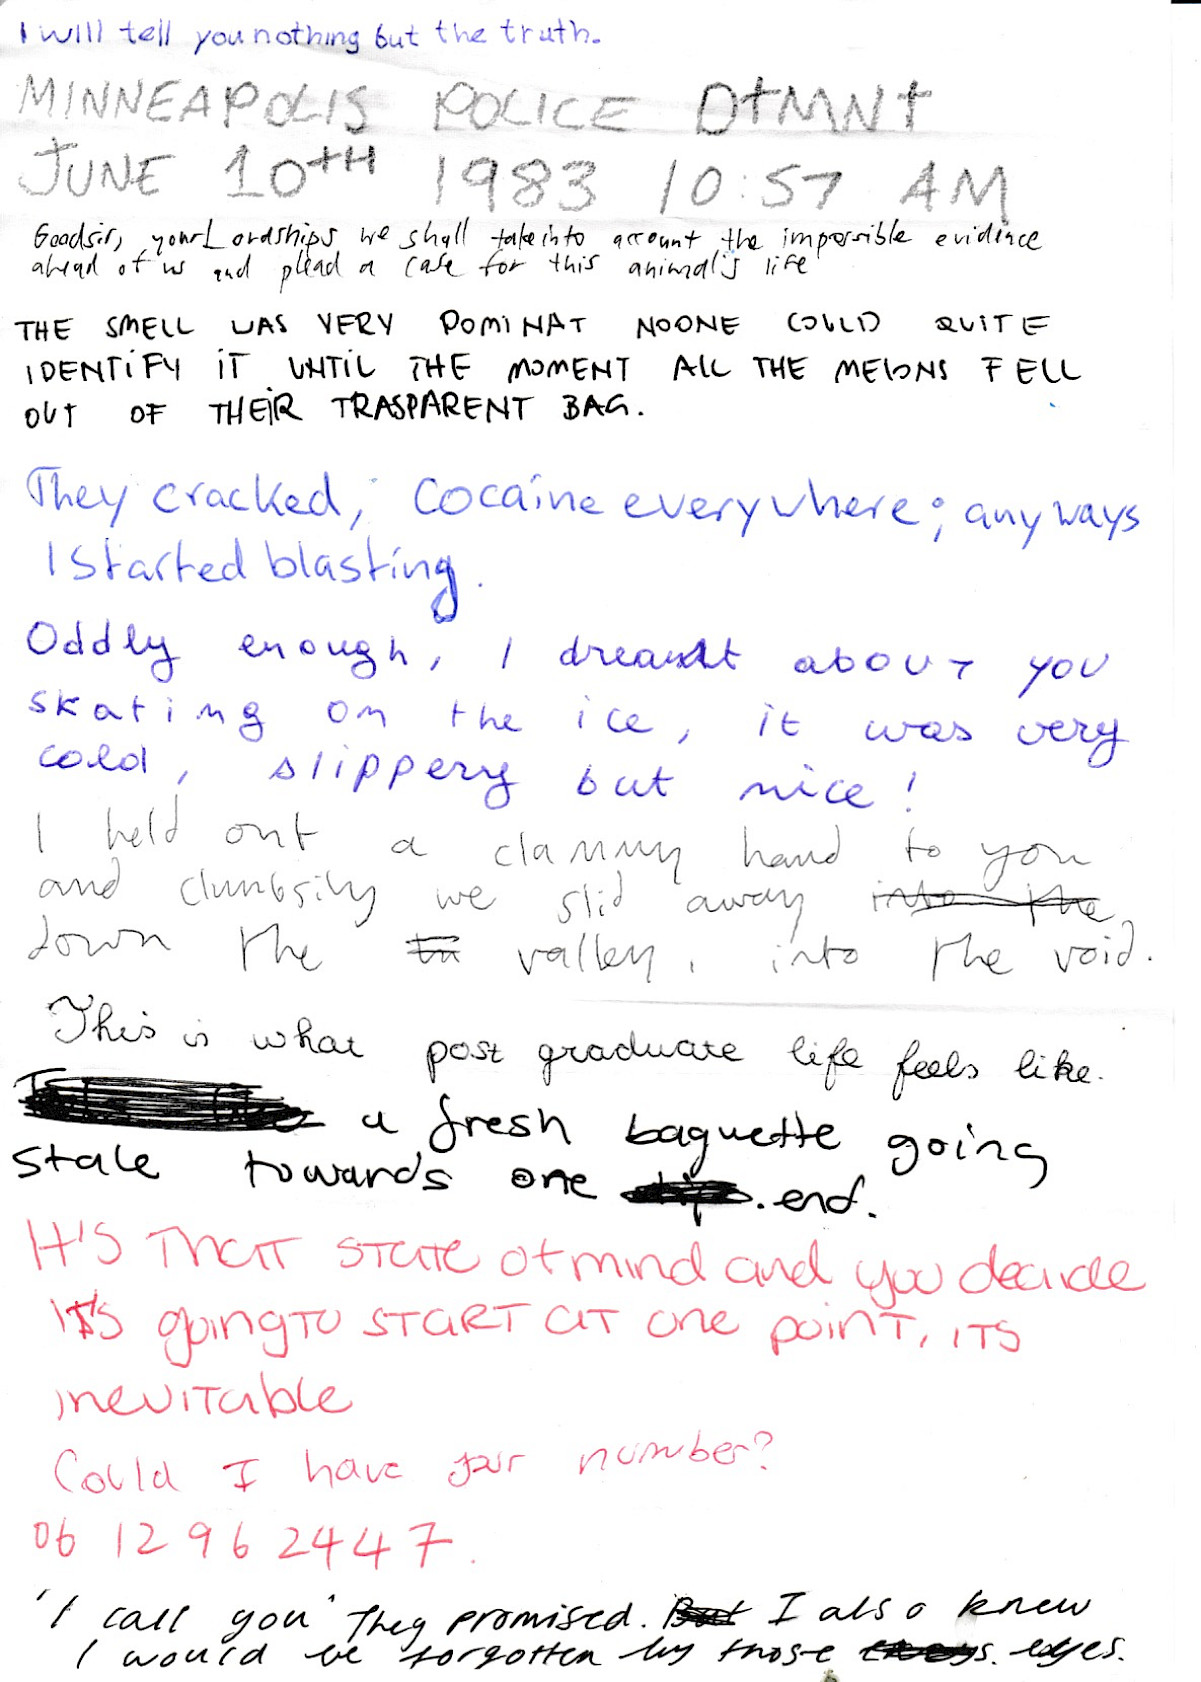 I will tell you nothing but the truth.
MINNEAPOLIS POLICE DTMNT
JUNE 10TH 1983 10:57 AM
Goodsir, your Lordships we shall take into account the impossible evidence
ahead of us and plead a case for this animal's life
THE SMELL WAS VERY DOMINAT NOONE COULD QUITE
IDENTIFY IT UNTIL THE MOMENT ALL THE MELONS FELL
OUT OF THEIR TRASPARENT BAG.
They cracked, Cocaine everywhere; anyways
I started blasting.
Oddly enough, I dreamt about you
skating on the ice, it was very
cold, slippery but nice!
I held out a clammy hand to you
and clumbsily we slid away into the
down the valley, into the void.
This is what post graduate life feels like.
a fresh baguette going
stale towards one end.
IT'S THAT STATE of mind and you decide
IT'S going TO START AT one poinT, ITS
ineviTable
Could I have your number?
06 12 96 2447.
'I call you' They promised. But I also knew
I would be forgotten by those eyes.